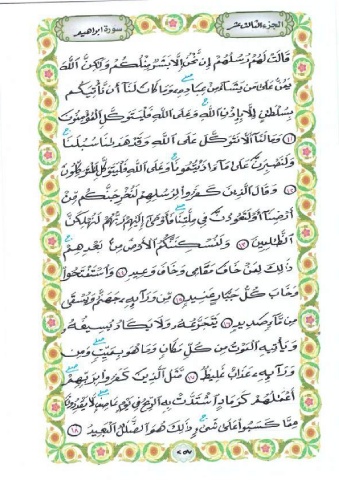 الجزء الثالث عشر
سورة ابراهيم
قَالَتْ لَهُمْ رُسُلُهُمْ إِن نَّحْنُ إِلَّا بَشَرٌ مِّثْلُكُمْ وَلَٰكِنَّ اللَّهَ
يَمُنُّ عَلَىٰ مَن يَشَاءُ مِنْ عِبَادِهِ وَمَا كَانَ لَنَا أَن نَّأْتِيَكُم
بِسُلْطَٰنٍ إِلَّا بِإِذْنِ اللَّهِ وَعَلَى اللَّهِ فَلْيَتَوَكَّلِ الْمُؤْمِنُونَ
١١ وَمَا لَنَا أَلَّا نَتَوَكَّلَ عَلَى اللَّهِ وَقَدْ هَدَىٰنَا سُبُلَنَا
وَلَنَصْبِرَنَّ عَلَىٰ مَا ءَاذَيْتُمُونَا وَعَلَى اللَّهِ فَلْيَتَوَكَّلِ الْمُتَوَكِّلُونَ
١٢ وَقَالَ الَّذِينَ كَفَرُوا لِرُسُلِهِمْ لَنُخْرِجَنَّكُم مِّنْ
أَرْضِنَا أَوْ لَتَعُودُنَّ فِي مِلَّتِنَا فَأَوْحَىٰ إِلَيْهِمْ رَبُّهُمْ لَنُهْلِكَنَّ
الظَّٰلِمِينَ ١٣ وَلَنُسْكِنَنَّكُمُ الْأَرْضَ مِنْ بَعْدِهِمْ
ذَٰلِكَ لِمَنْ خَافَ مَقَامِي وَخَافَ وَعِيدِ ١٤ وَاسْتَفْتَحُوا
وَخَابَ كُلُّ جَبَّارٍ عَنِيدٍ ١٥ مِّن وَرَائِهِ جَهَنَّمُ وَيُسْقَىٰ
مِن مَّاءٍ صَدِيدٍ ١٦ يَتَجَرَّعُهُ وَلَا يَكَادُ يُسِيغُهُ
وَيَأْتِيهِ الْمَوْتُ مِن كُلِّ مَكَانٍ وَمَا هُوَ بِمَيِّتٍ وَمِن
وَرَائِهِ عَذَابٌ غَلِيظٌ ١٧ مَّثَلُ الَّذِينَ كَفَرُوا بِرَبِّهِمْ
أَعْمَٰلُهُمْ كَرَمَادٍ اشْتَدَّتْ بِهِ الرِّيحُ فِي يَوْمٍ عَاصِفٍ لَّا يَقْدِرُونَ
مِمَّا كَسَبُوا عَلَىٰ شَيْءٍ ذَٰلِكَ هُوَ الضَّلَٰلُ الْبَعِيدُ ١٨